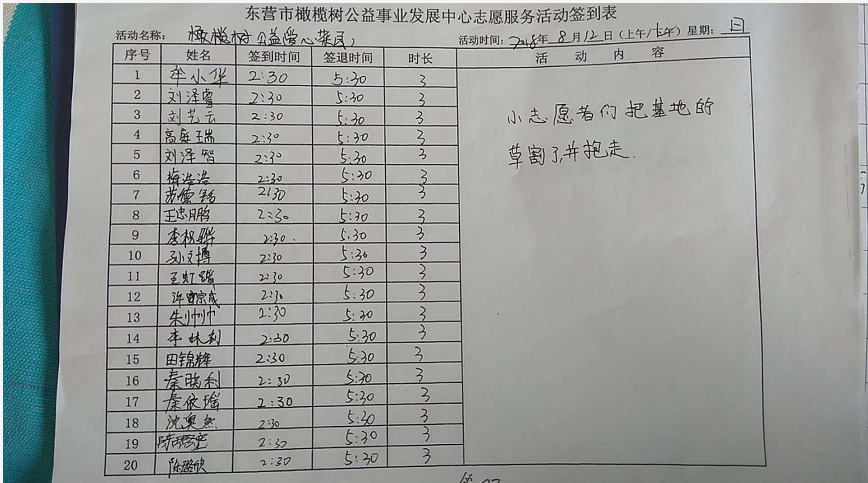 东营市橄榄树公益事业发展中心志愿服务活动签到表
活动名称: 橄榄树公益爱心菜园
活动时间: 2018年8月12日(上午/下午) 星期: 日
序号 姓名 签到时间 签退时间 时长 活动内容
1 牟小华 2:30 5:30 3
2 刘泽睿 2:30 5:30 3
3 刘艺云 2:30 5:30 3
4 高 瑞 2:30 5:30 3
5 刘泽智 2:30 5:30 3
6 梅浩浩 2:30 5:30 3
7 2:30 5:30 3
8 王志鹏 2:30 5:30 3
9 李 2:30 5:30 3
10 孙文博 2:30 5:30 3
11 王 2:30 5:30 3
12 许 宗成 2:30 5:30 3
13 朱帅帅 2:30 5:30 3
14 李林利 2:30 5:30 3
15 田锦辉 2:30 5:30 3
16 秦晓利 2:30 5:30 3
17 秦依瑶 2:30 5:30 3
18 沈奥然 2:30 5:30 3
19 2:30 5:30 3
20 陈 欣 2:30 5:30 3
小志愿者们把基地的
草割了,并抱走.